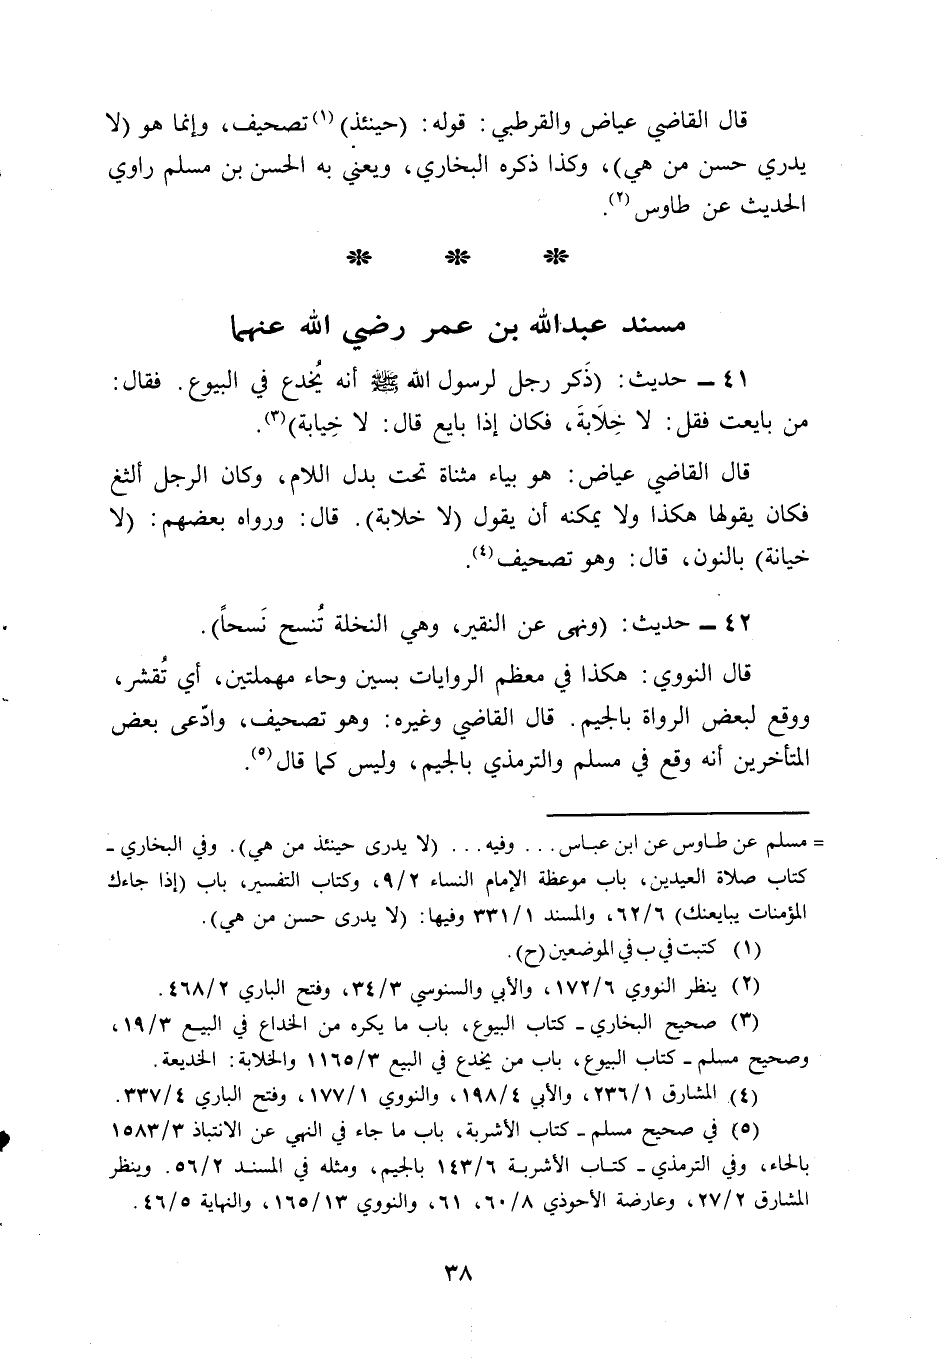 قال القاضي عياض والقرطبي: قوله: (حينئذ)(١) تصحيف، وإنما هو (لا
يدري حسن من هي)، وكذا ذكره البخاري، ويعني به الحسن بن مسلم راوي
الحديث عن طاوس(٢).
* * *
مسند عبدالله بن عمر رضي الله عنهما
٤١ ــ حديث: (ذَكر رجل لرسول الله ﷺ أنه يُخدع في البيوع. فقال:
من بايعت فقل: لا خِلَابةَ، فكان إذا بايع قال: لا خِيابة)(٣).
قال القاضي عياض: هو بياء مثناة تحت بدل اللام، وكان الرجل ألثغ
فكان يقولها هكذا ولا يمكنه أن يقول (لا خلابة). قال: ورواه بعضهم: (لا
خيانة) بالنون، قال: وهو تصحيف(٤).
٤٢ ــ حديث: (ونهى عن النقير، وهي النخلة تُنسح نَسحاً).
قال النووي: هكذا في معظم الروايات بسين وحاء مهملتين، أي تُقشر،
ووقع لبعض الرواة بالجيم. قال القاضي وغيره: وهو تصحيف، وادّعى بعض
المتأخرين أنه وقع في مسلم والترمذي بالجيم، وليس كما قال(٥).
= مسلم عن طاوس عن ابن عباس... وفيه... (لا يدرى حينئذ من هي). وفي البخاري -
كتاب صلاة العيدين، باب موعظة الإمام النساء ٩/٢، وكتاب التفسير، باب (إذا جاءك
المؤمنات يبايعنك) ٦٢/٦، والمسند ٣٣١/١ وفيها: (لا يدرى حسن من هي).
(١) كتبت في ب في الموضعين (ح).
(٢) ينظر النووي ١٧٢/٦، والأبي والسنوسي ٣٤/٣، وفتح الباري ٤٦٨/٢.
(٣) صحيح البخاري - كتاب البيوع، باب ما يكره من الخداع في البيع ١٩/٣،
وصحيح مسلم - كتاب البيوع، باب من يخدع في البيع ١١٦٥/٣ والخلابة: الخديعة.
(٤) المشارق ٢٣٦/١، والأبي ١٩٨/٤، والنووي ١٧٧/١، وفتح الباري ٣٣٧/٤.
(٥) في صحيح مسلم - كتاب الأشربة، باب ما جاء في النهي عن الانتباذ ١٥٨٣/٣
بالحاء، وفي الترمذي - كتاب الأشربة ١٤٣/٦ بالجيم، ومثله في المسند ٥٦/٢. وينظر
المشارق ٢٧/٢، وعارضة الأحوذي ٦٠/٨، ٦١، والنووي ١٦٥/١٣، والنهاية ٤٦/٥.
٣٨